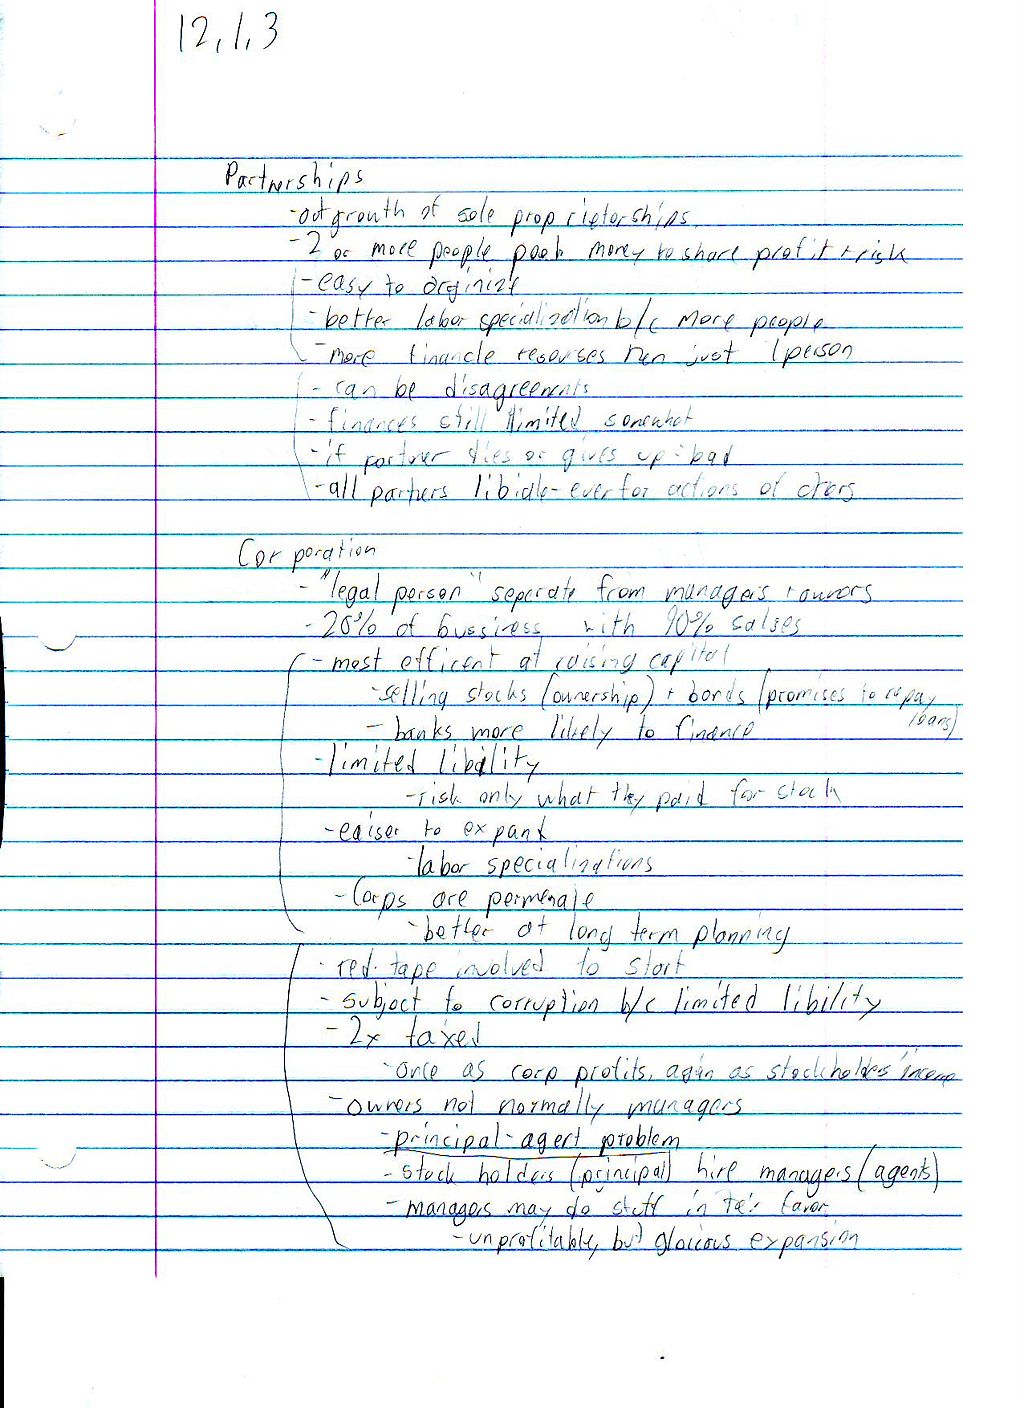 12,1,3
Partnerships
-outgrowth of sole proprietorships
-2 or more people pool money to share profit + risk
-easy to orginize
-better labor specialization b/c more people
-more financle resourses then just 1 person
-can be disagreements
-finances still limited somewhat
-if partner dies or gives up - bad
-all partners - ever for actions of
Corporation
-"legal person" seperate from managers + owners
-20% of bussiness with 90% salses
-most efficent at raising capital
-selling stocks (ownership) + bonds (promises to repay
loans)
-banks more likely to finance
-limited libility
-risk only what they paid for stock
-eaiser to expand
-labor specializations
-Corps are
-better at long term planning
-red-tape involved to start
-subject to corruption b/c limited libility
-2x taxed
-once as corp profits, again as stockholders' income
-owners not normally managers
-principal-agent problem
-stock holders (principal) hire managers (agents)
-managers may do stuff in favor
-unprofitable, but glorious expansion